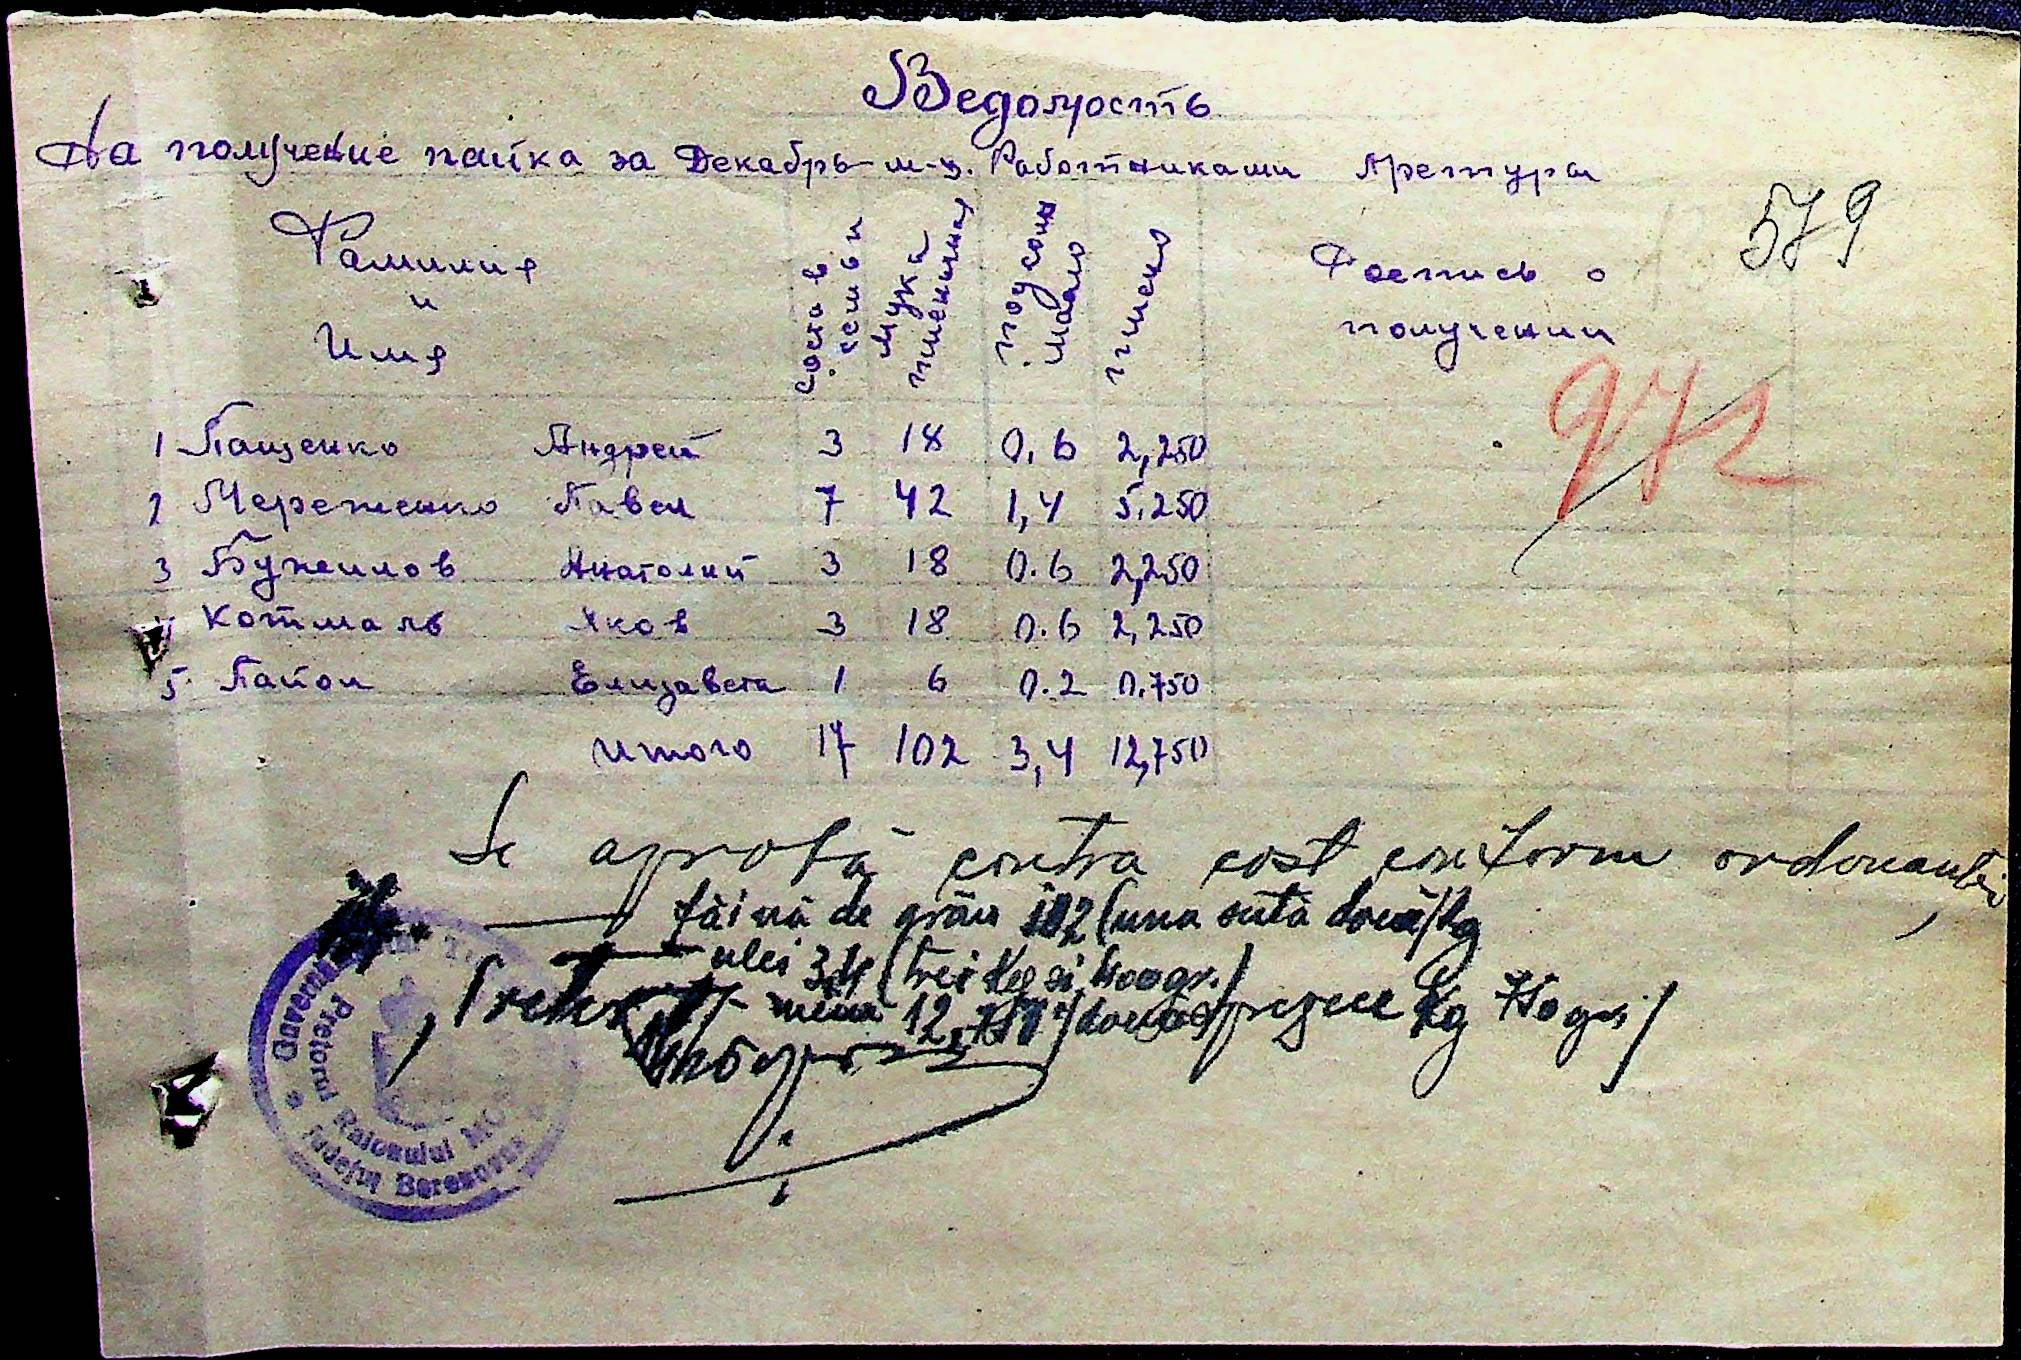 Ведомость
На получение пайка за Декабрь м-ц. Работниками Претуры
579
Фамилия
и
Имя
состав
семьи
мука
пшеничная
подсолн
масло
пшено
Роспись о
получении
972
1 Пащенко Андрей 3 18 0,6 2,250
2 Павел 7 42 1,4 5.250
3 Анатолий 3 18 0.6 2,250
4 Котмаль Яков 3 18 0.6 2,250
5 Елизавета 1 6 0.2 0.750
Итого 17 102 3,4 12,750
Se aprobă contra cost conform ordonanței
făină de grâu 102 (una sută două) kg
ulei 3,4 (trei kg și 400 gr.)
Pretor
12,750 kg
Guvernământul
Pretorul Raionului
Județul Berezovca